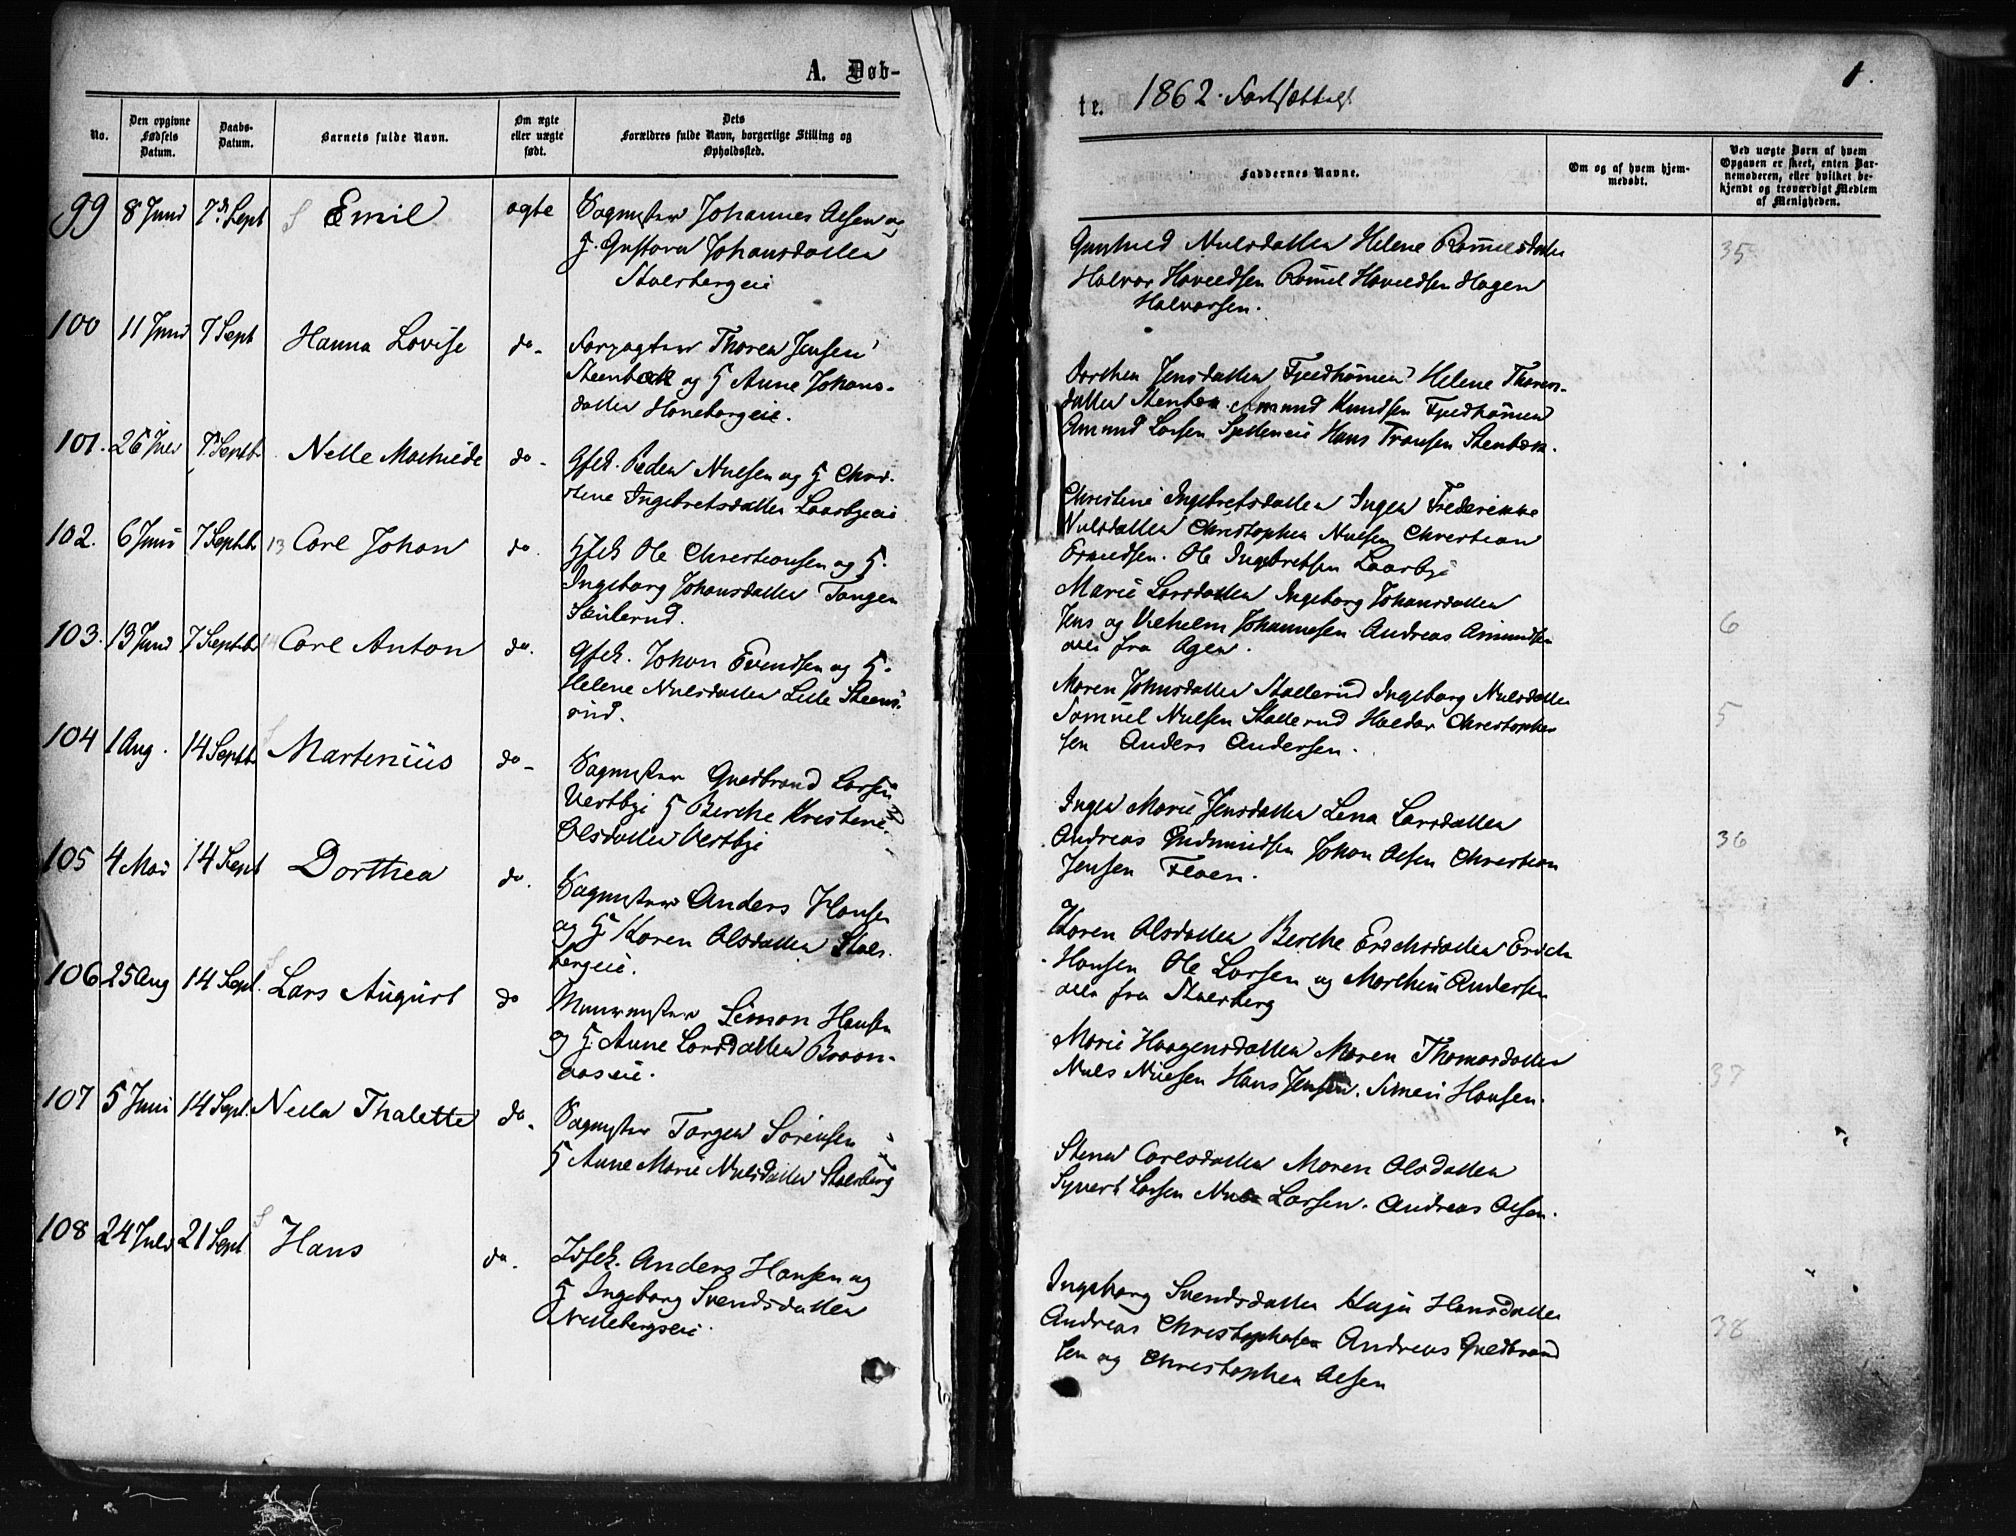 A. Døb-
No.
Den opgivne Fødsels Datum.
Daabs- Datum.
Barnets fulde Navn.
Om ægte eller uægte født.
Dets Forældres fulde Navn, borgerlige Stilling og Opholdssted.
99 8 Juni 7de Sept Emil ægte Sagmester Johannes Olsen og
G. Gustava Johansdatter
Stalsbergeie
100 11 Juni 7 Sept Hanna Lovise do- Forpagter Thoren Jensen
Steenbæk og G Anne Johans-
datter Honeborgeie.
101. 26 Juli 7 Septbr Nelle Mathilde do- Gfsk. Peder Nielsen og G Chri-
stene Ingebretsdatter Laarbyeie
102. 6 Juni 7 Septbr 13 Carl Johan do. Gfsk Ole Christiansen og G.
Ingeborg Johansdatter Tangen
Skulerud.
103. 13 Juni 7 Septbr 14 Carl Anton do. Gfsk. Johan Evendsen og G.
Helene Nielsdatter Lille Steens-
rud.
104 1 Aug. 14 Septbr Martinius do- Sagmester Guldbrand Larsen
Vestbye G Berthe Kristene
Olsdatter Vestbye
105 4 Mai 14 Sept Dorthea do. Sagmester Anders Hansen
og G. Karen Olsdatter Stals-
bergeie.
106 25 Aug 14 Sept. Lars August do Muurmester Simon Hansen
og G. Anne Larsdatter Braan-
aaseie.
107 5 Juni 14 Sept. Nella Thalette do. Sagmester Torger Sørensen
G Anne Marie Nielsdatter Stalsberg
108 24 Juli 21 Sept Hans do. Anders Hansen og
G Ingeborg Svendsdatter
te. 1862. Fortsættelse
1.
Faddernes Navne.
Om og af hvem hjem- medøbt.
Ved uægte Børn af hvem Opgaven er skeet, enten Bar- nemoderen, eller hvilket be- kjendt og troværdigt Medlem af Menigheden.
Gunhild Nielsdatter Helene 35
Halvor Hovelsen Hovelsen Hagen
Halvorsen.
Dorthea Jensdatter Fjeldhammer Helene Thorens-
datter Stenbæk Amund Knudsen Fjeldhammer
Amund Larsen Hans Fransen Stenbæk.
Christine Ingebretsdatter Inger Frederikke
Nielsdatter Christopher Nielsen Christian
Ole Ingebretsen Laarbye
Marie Larsdatter Ingeborg Johansdatter
Jens og Vilhelm Johannesen Andreas Amundsen 6
alle fra Ager.
Maren Johnsdatter Stallerud Ingeborg Nielsdatter
Samuel Nielsen Stallerud Haldor Christopher- 5
sen Anders Andersen.
Inger Marie Jensdatter Lena Larsdatter
Andreas Gudmundsen Johan Olsen Christian 36
Jensen Flaen.
Karen Olsdatter Berthe Erichsdatter Erich
Hansen Ole Larsen og Marthin Andersen
alle fra Stalsberg
Marie Haagensdatter Maren Thomasdatter
Niels Nielsen Hans Jensen. Simen Hansen. 37
Stena Carlsdatter Maren Olsdatter
Syvert Larsen Larsen. Andreas Olsen.
Ingeborg Svendsdatter Kaja Hansdatter
Andreas Christophersen Andreas Guldbrand 38
sen og Christopher Olsen